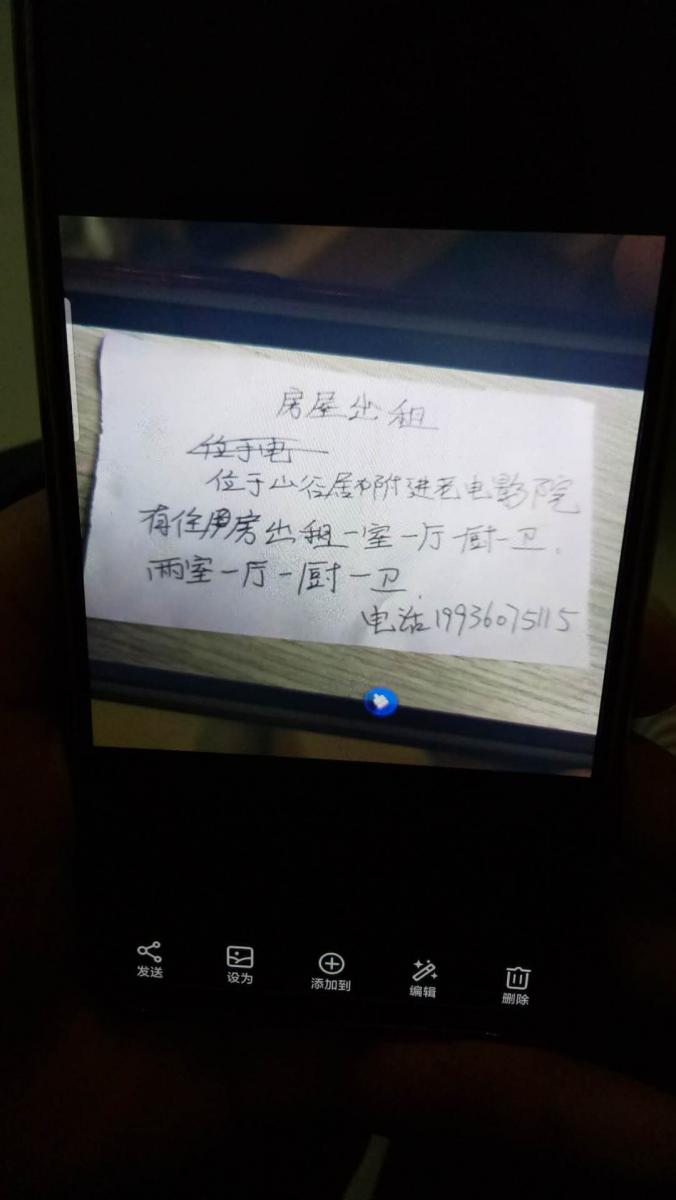 房屋出租
位于电
位于山谷居附进老电影院
有住用房出租一室一厅一厨一卫.
两室一厅一厨一卫.
电话19936075115
发送 设为 添加到 编辑 删除